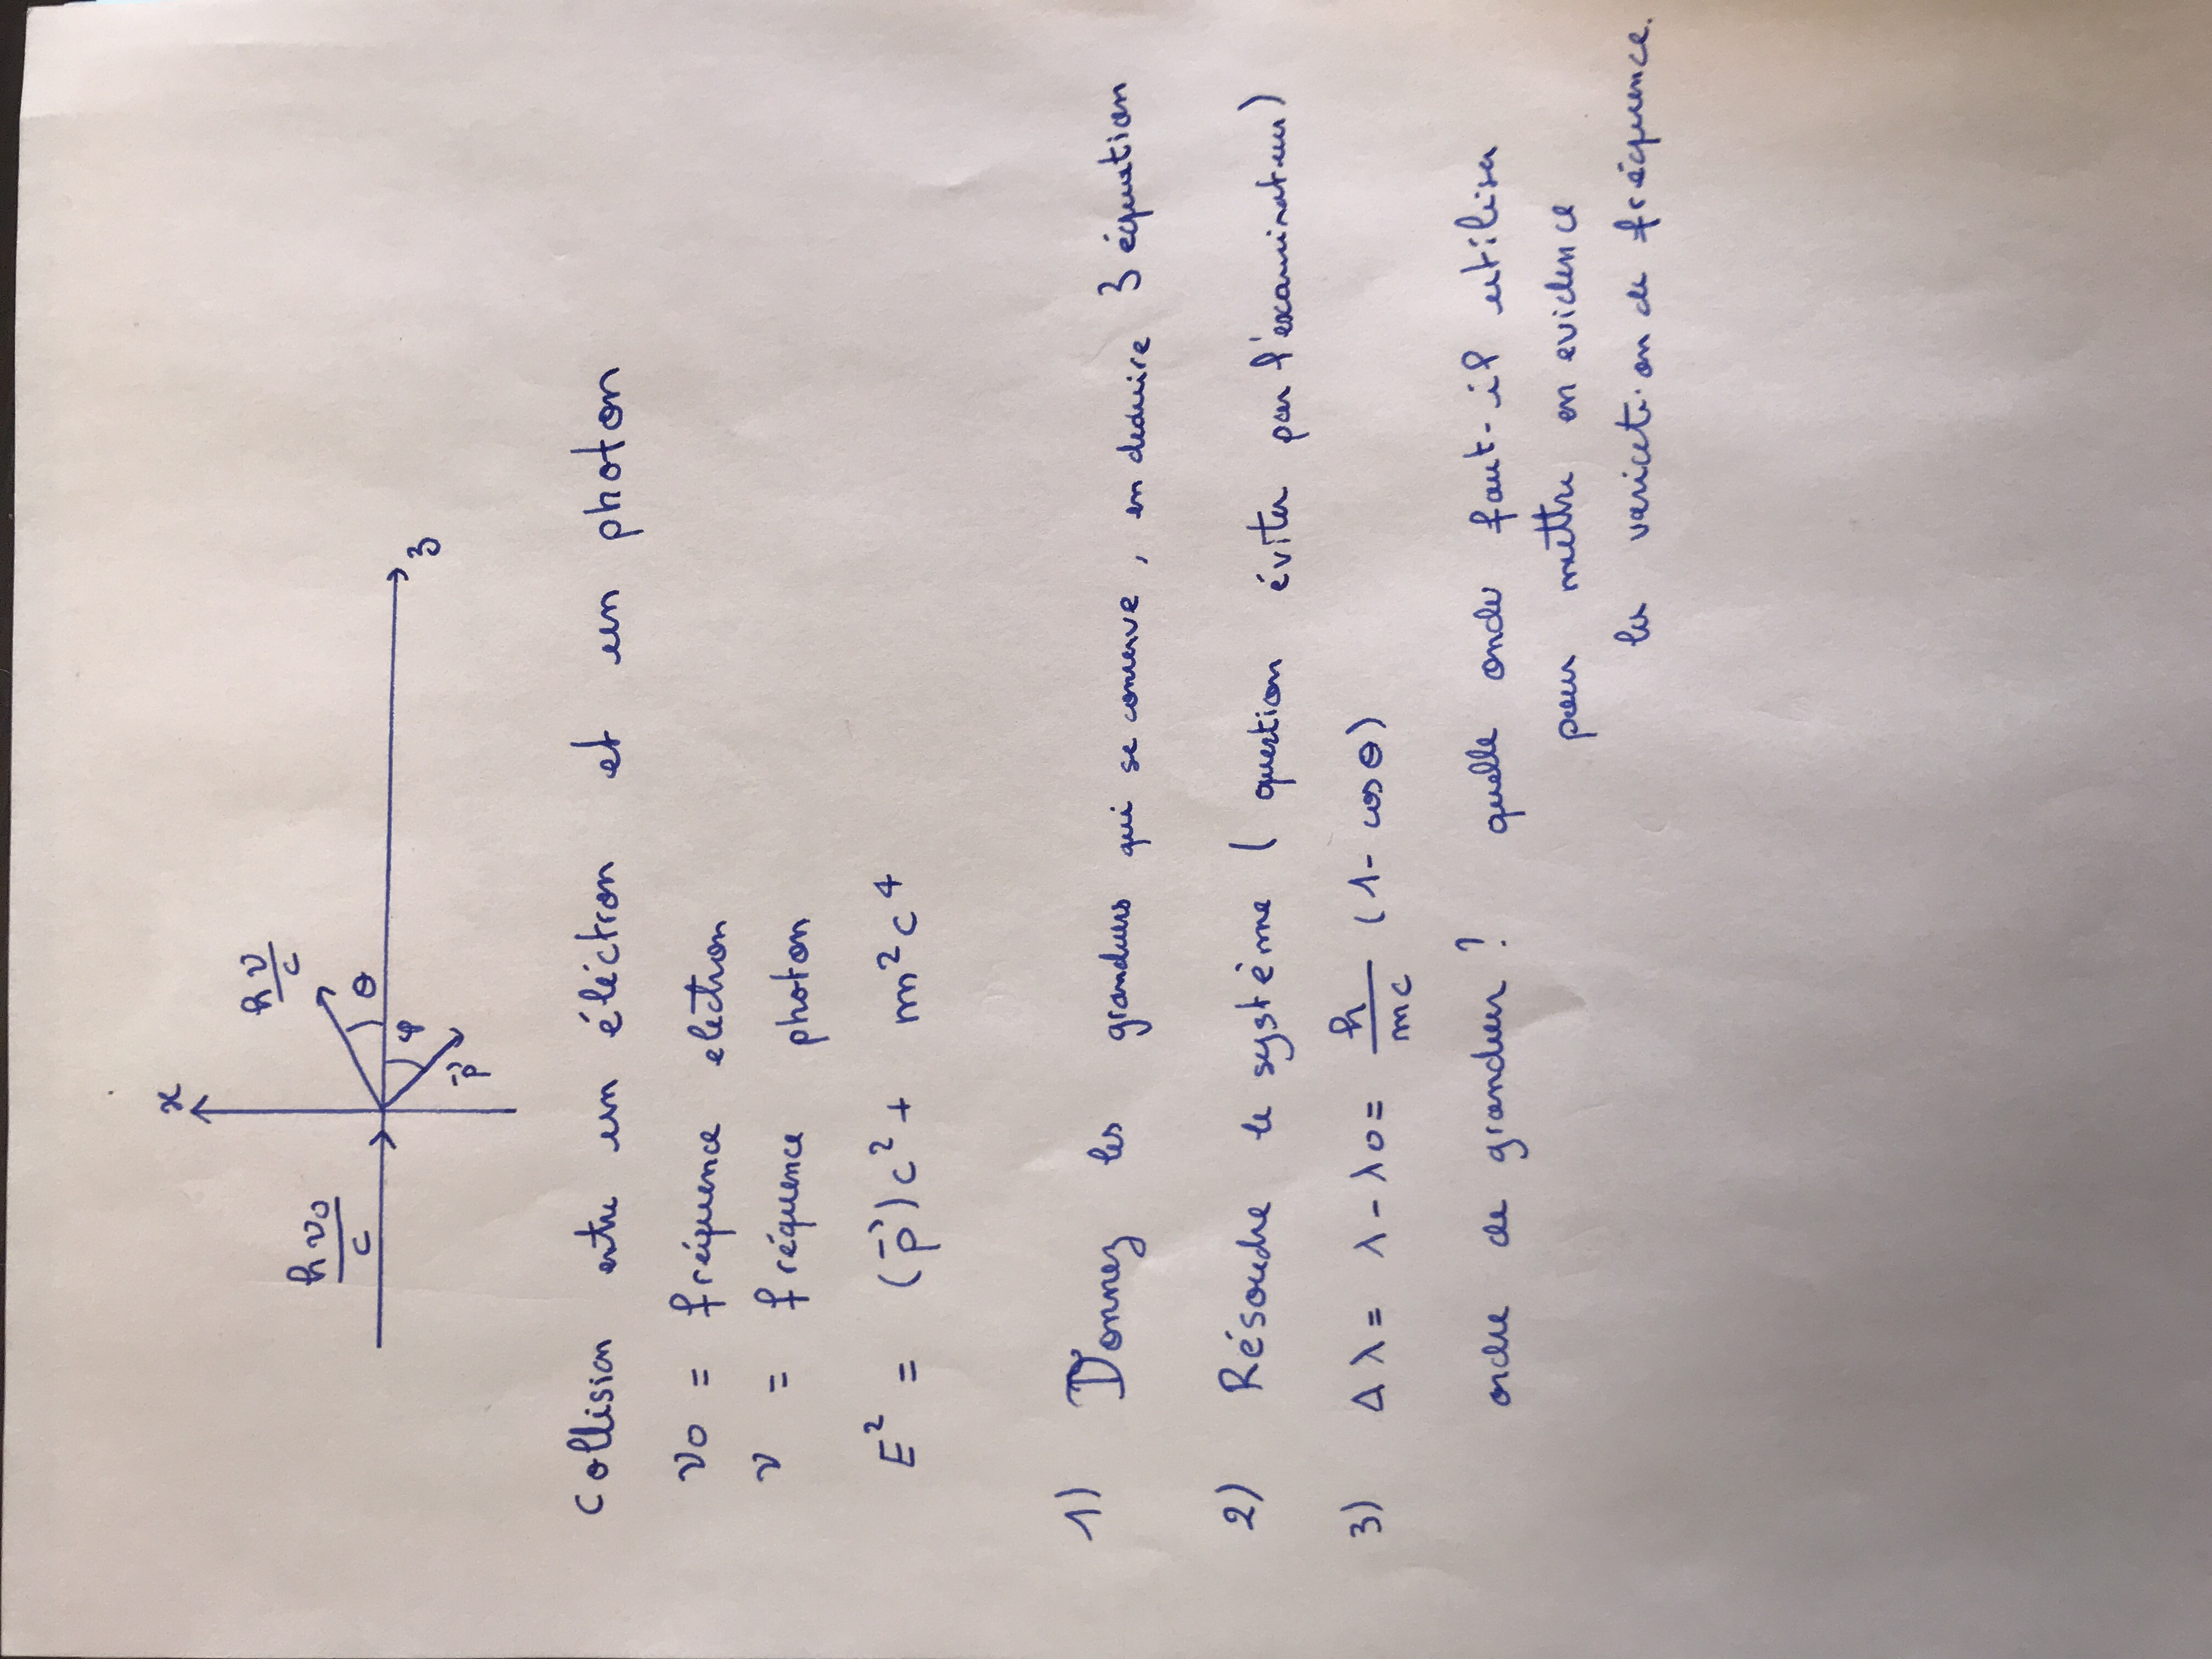 x
hν0/c
hν/c
θ
φ
p⃗
z
Collision entre un éléctron et un photon
ν0 = fréquence electron
ν = fréquence photon
E² = (p⃗)c² + m²c⁴
1) Donnez les grandeurs qui se conserve, en deduire 3 équation
2) Résoudre le système (question éviter par l'examinateur)
3) Δλ = λ - λ0 = h/mc (1 - cos θ)
ordre de grandeur ? quelle onde faut-il utiliser
pour mettre en evidence
les variation de fréquence.